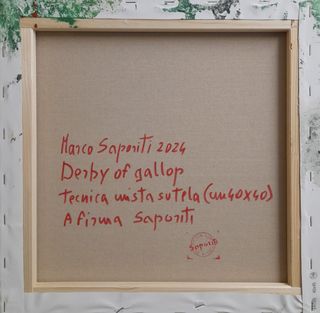 Marco Saporiti 2024
Derby of gallop
tecnica mista su tela (cm 40x40)
A firma Saporiti
Saporiti